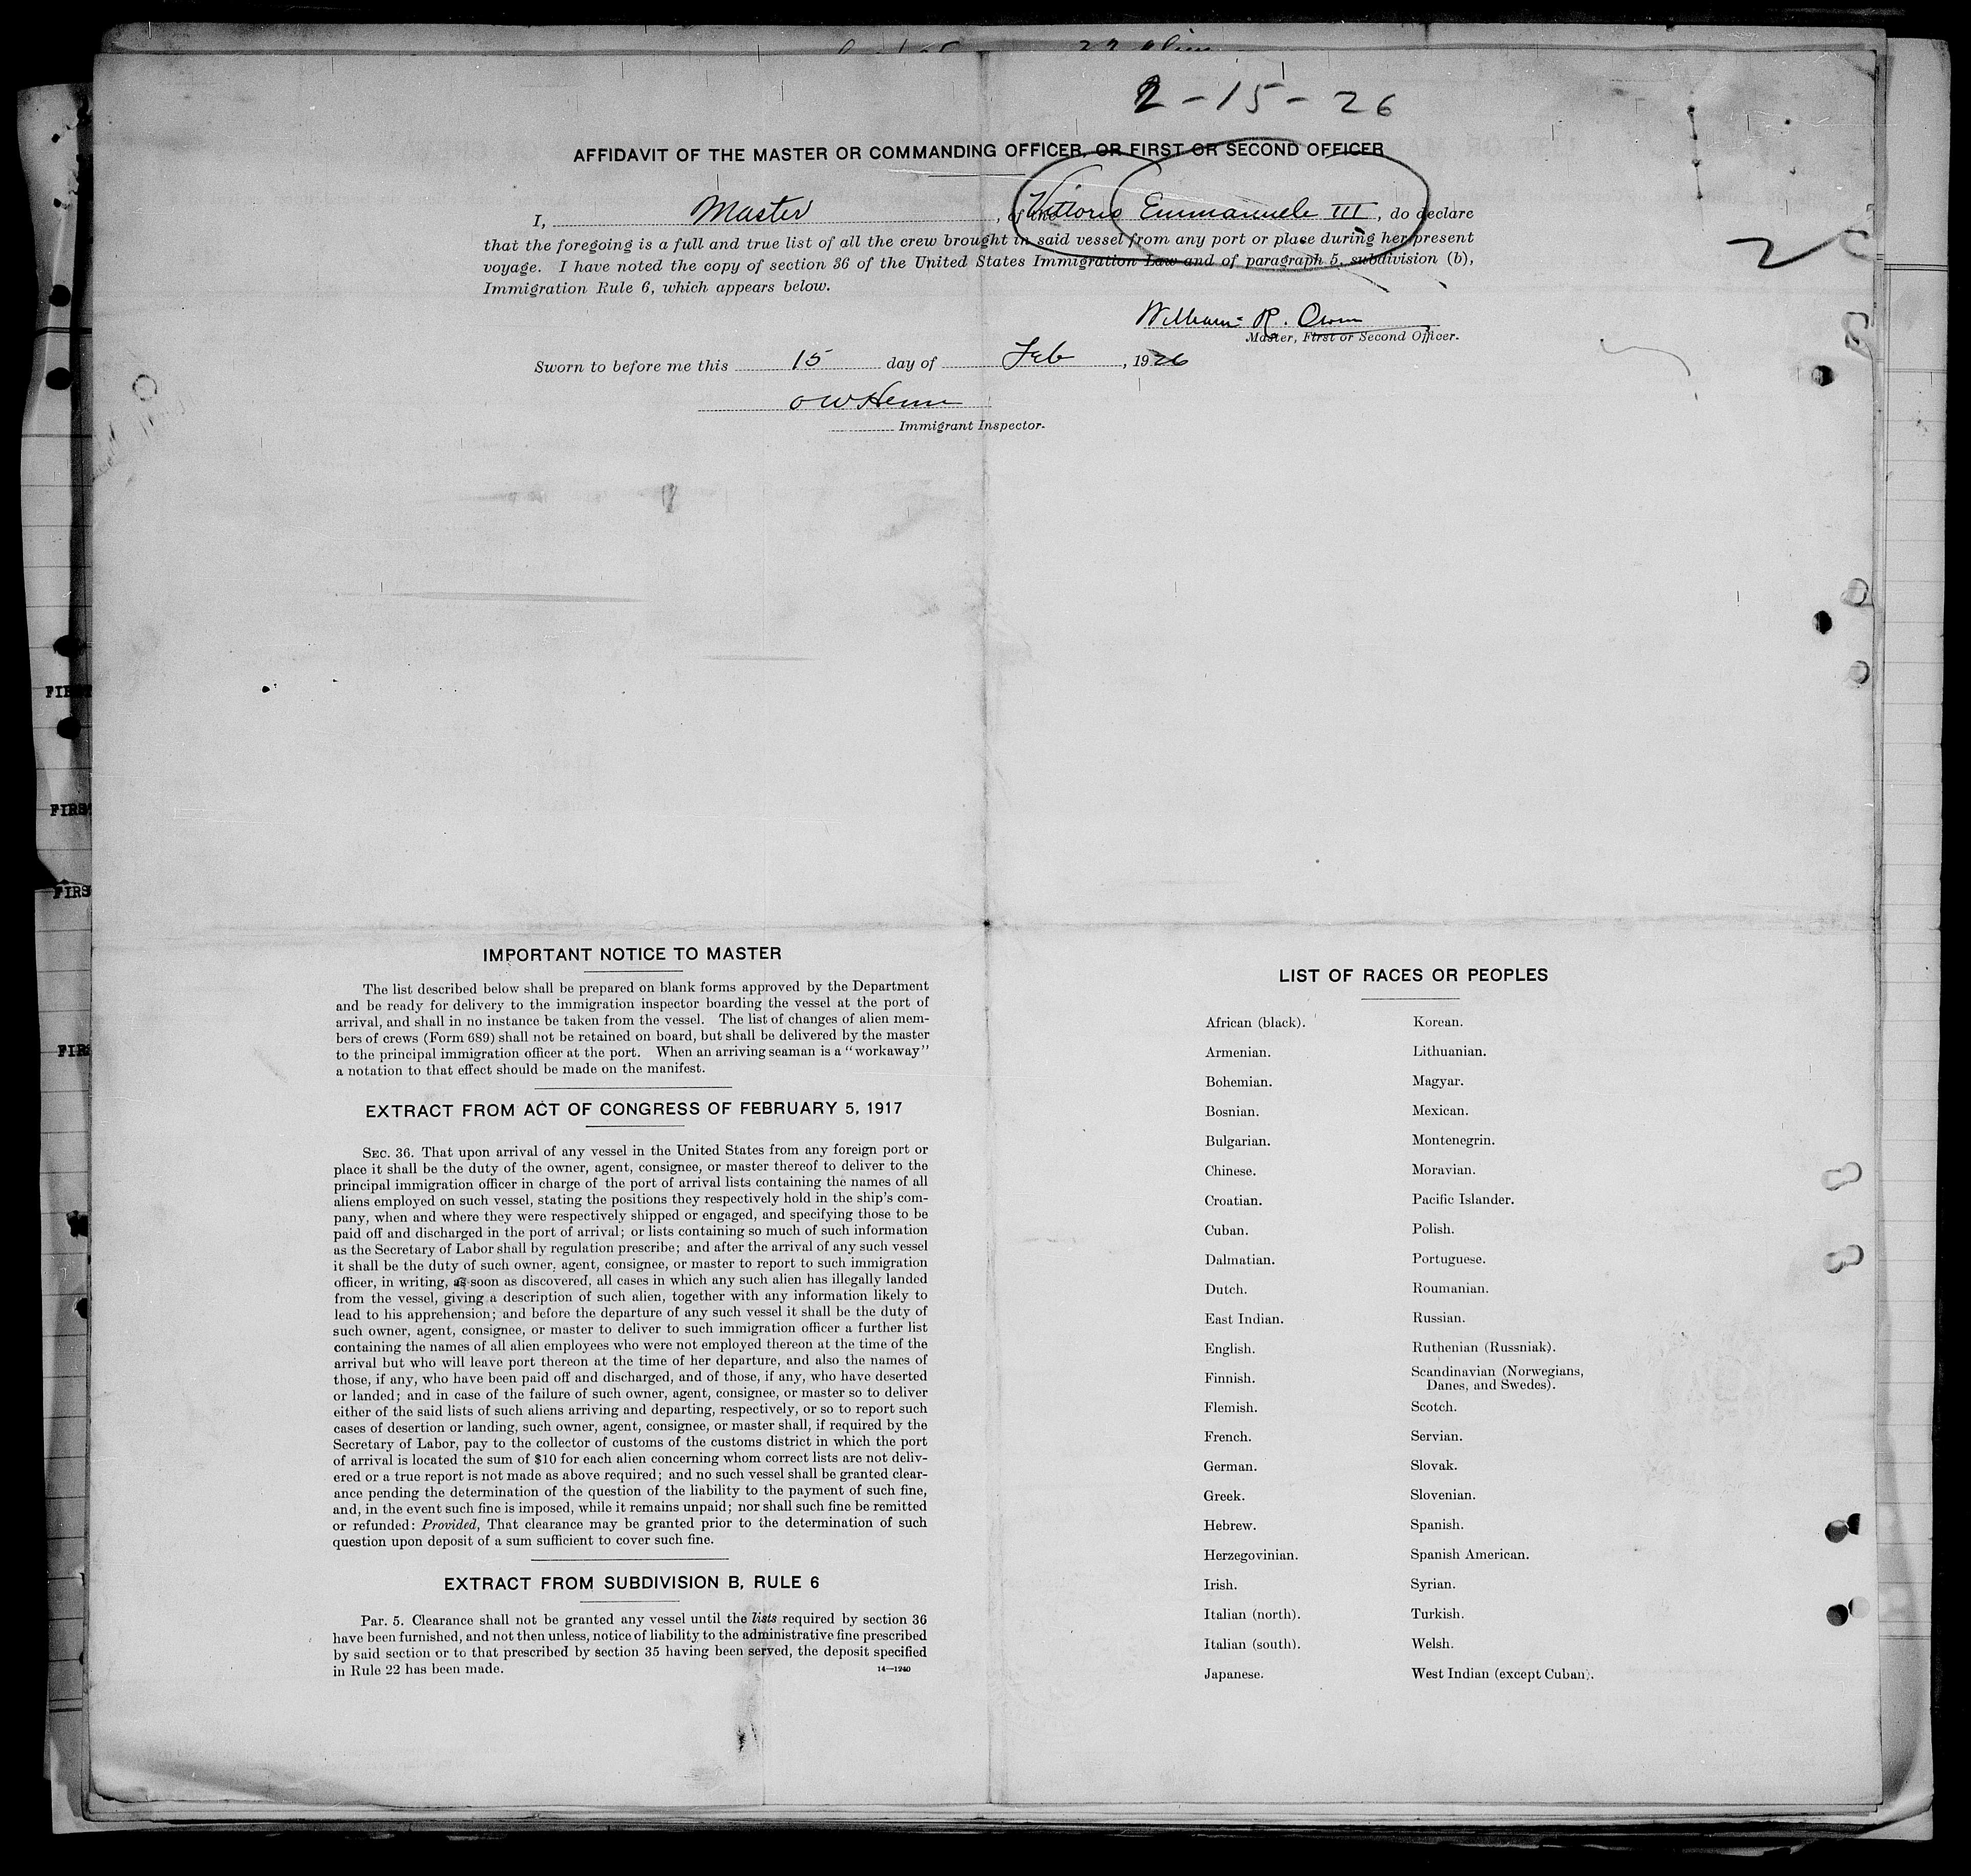 2-15-26
AFFIDAVIT OF THE MASTER OR COMMANDING OFFICER, OR FIRST OR SECOND OFFICER
I, Master, of the Vittorio Emmanuele III, do declare
that the foregoing is a full and true list of all the crew brought in said vessel from any port or place during her present
voyage. I have noted the copy of section 36 of the United States Immigration Law and of paragraph 5, subdivision (b),
Immigration Rule 6, which appears below.
William R. Owen
Master, First or Second Officer.
Sworn to before me this 15 day of Feb, 1926
Immigrant Inspector.
2
FIRS
FIRS
FIRS
IMPORTANT NOTICE TO MASTER
The list described below shall be prepared on blank forms approved by the Department
and be ready for delivery to the immigration inspector boarding the vessel at the port of
arrival, and shall in no instance be taken from the vessel. The list of changes of alien mem-
bers of crews (Form 689) shall not be retained on board, but shall be delivered by the master
to the principal immigration officer at the port. When an arriving seaman is a "workaway"
a notation to that effect should be made on the manifest.
EXTRACT FROM ACT OF CONGRESS OF FEBRUARY 5, 1917
SEC. 36. That upon arrival of any vessel in the United States from any foreign port or
place it shall be the duty of the owner, agent, consignee, or master thereof to deliver to the
principal immigration officer in charge of the port of arrival lists containing the names of all
aliens employed on such vessel, stating the positions they respectively hold in the ship's com-
pany, when and where they were respectively shipped or engaged, and specifying those to be
paid off and discharged in the port of arrival; or lists containing so much of such information
as the Secretary of Labor shall by regulation prescribe; and after the arrival of any such vessel
it shall be the duty of such owner, agent, consignee, or master to report to such immigration
officer, in writing, as soon as discovered, all cases in which any such alien has illegally landed
from the vessel, giving a description of such alien, together with any information likely to
lead to his apprehension; and before the departure of any such vessel it shall be the duty of
such owner, agent, consignee, or master to deliver to such immigration officer a further list
containing the names of all alien employees who were not employed thereon at the time of the
arrival but who will leave port thereon at the time of her departure, and also the names of
those, if any, who have been paid off and discharged, and of those, if any, who have deserted
or landed; and in case of the failure of such owner, agent, consignee, or master so to deliver
either of the said lists of such aliens arriving and departing, respectively, or so to report such
cases of desertion or landing, such owner, agent, consignee, or master shall, if required by the
Secretary of Labor, pay to the collector of customs of the customs district in which the port
of arrival is located the sum of $10 for each alien concerning whom correct lists are not deliv-
ered or a true report is not made as above required; and no such vessel shall be granted clear-
ance pending the determination of the question of the liability to the payment of such fine,
and, in the event such fine is imposed, while it remains unpaid; nor shall such fine be remitted
or refunded: Provided, That clearance may be granted prior to the determination of such
question upon deposit of a sum sufficient to cover such fine.
EXTRACT FROM SUBDIVISION B, RULE 6
Par. 5. Clearance shall not be granted any vessel until the lists required by section 36
have been furnished, and not then unless, notice of liability to the administrative fine prescribed
by said section or to that prescribed by section 35 having been served, the deposit specified
in Rule 22 has been made.
14—1240
LIST OF RACES OR PEOPLES
African (black).
Armenian.
Bohemian.
Bosnian.
Bulgarian.
Chinese.
Croatian.
Cuban.
Dalmatian.
Dutch.
East Indian.
English.
Finnish.
Flemish.
French.
German.
Greek.
Hebrew.
Herzegovinian.
Irish.
Italian (north).
Italian (south).
Japanese.
Korean.
Lithuanian.
Magyar.
Mexican.
Montenegrin.
Moravian.
Pacific Islander.
Polish.
Portuguese.
Roumanian.
Russian.
Ruthenian (Russniak).
Scandinavian (Norwegians,
Danes, and Swedes).
Scotch.
Servian.
Slovak.
Slovenian.
Spanish.
Spanish American.
Syrian.
Turkish.
Welsh.
West Indian (except Cuban).